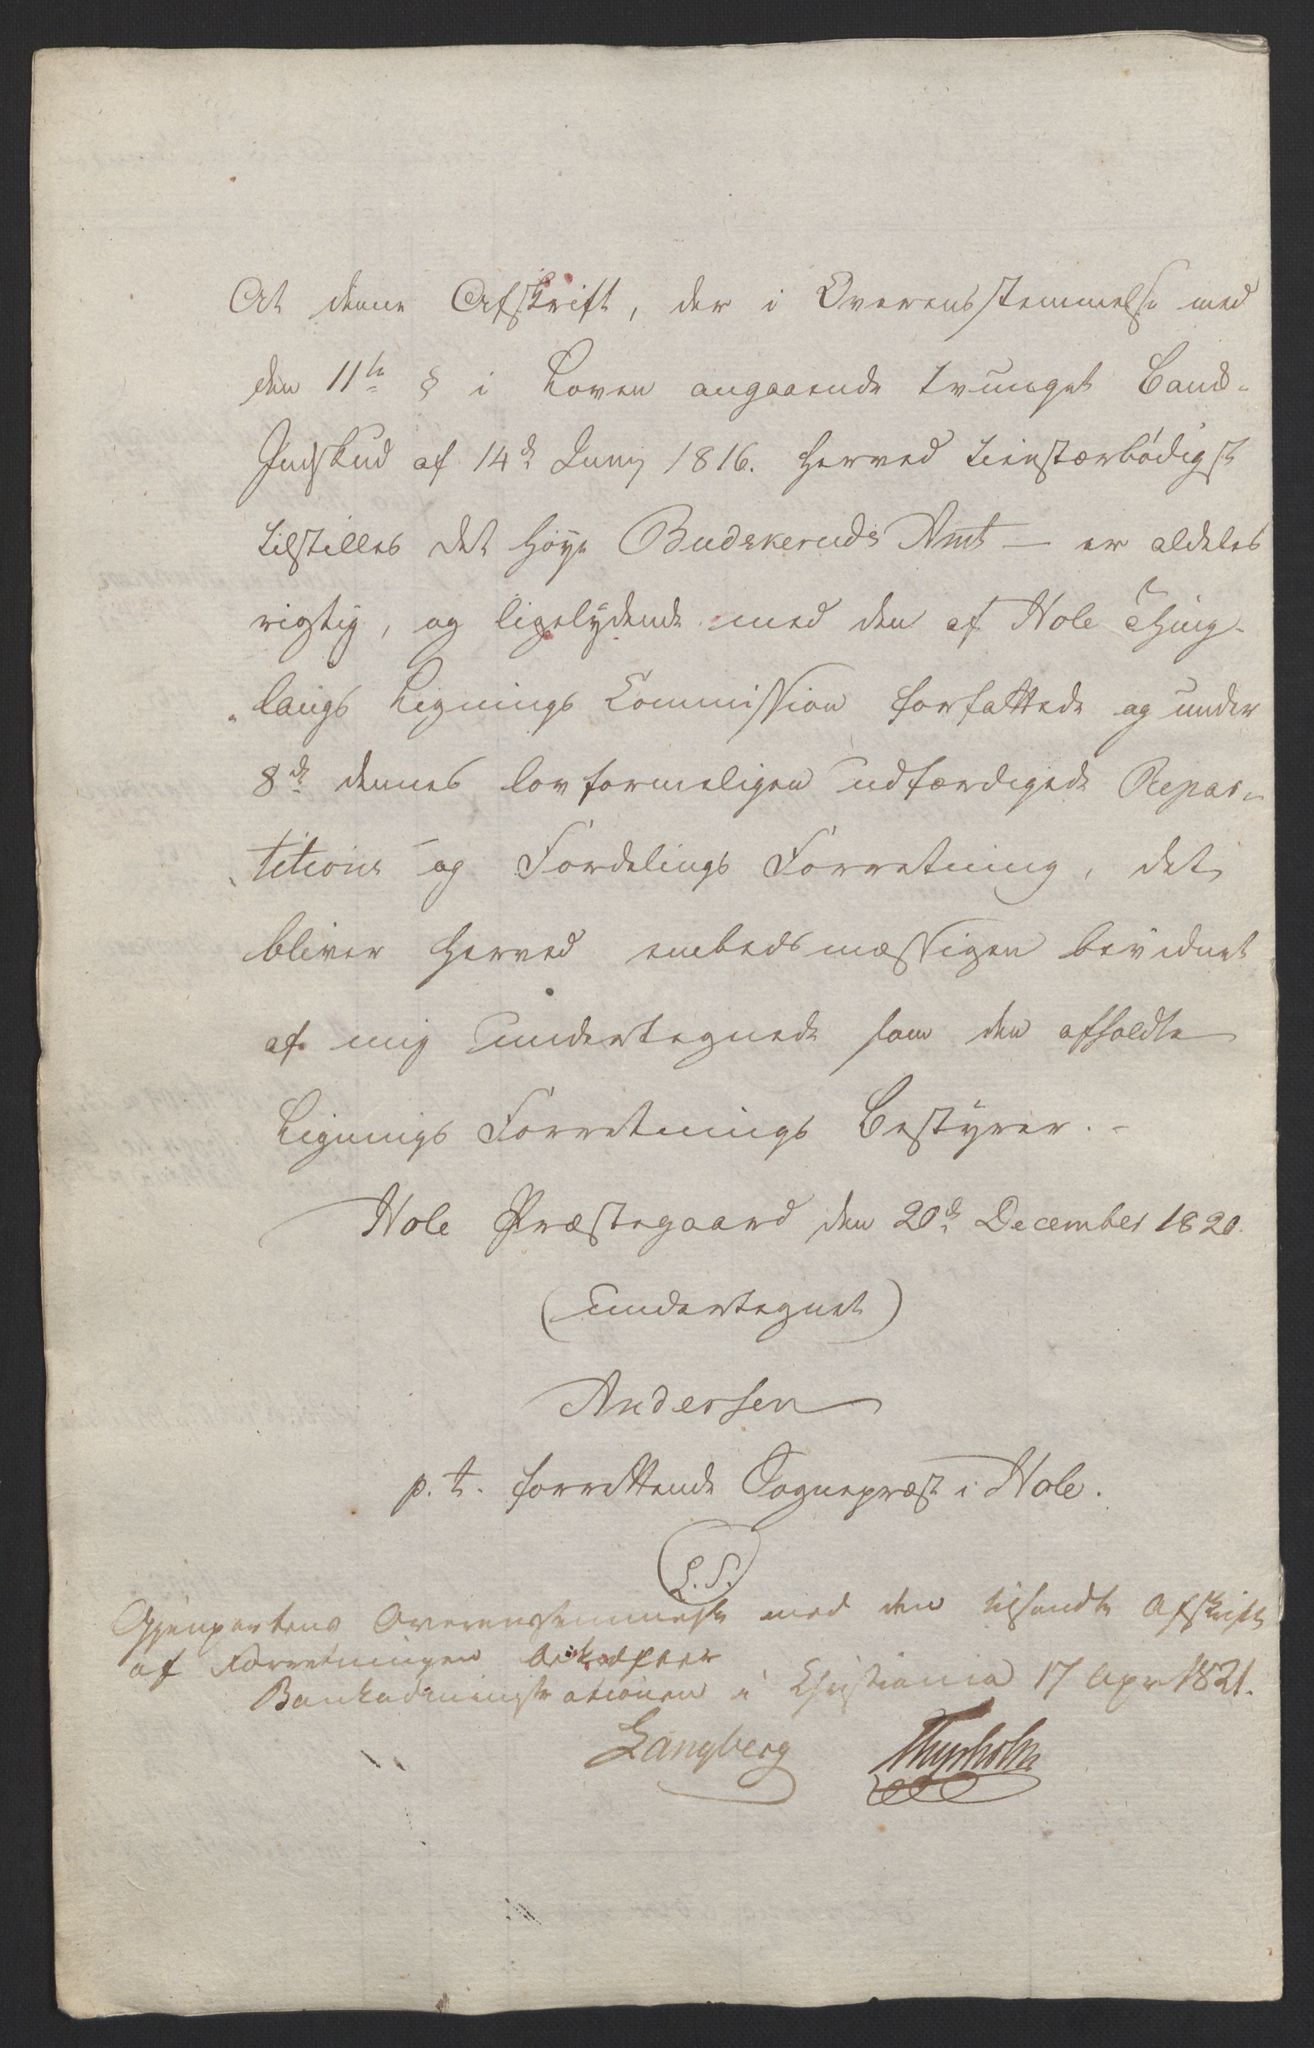 At denne Afskrift, der i Overensstemmelse med
den 11te § i Loven angaaende tvunget Banc-
Indskud af 14de Junij 1816. herved tienstærbødigst
tilstilles det høye Budskeruds Amt — er aldeles
rigtig, og ligelydende med den af Hole Thing-
laugs Lignings Commission forfattede og under
8de dennes lovformeligen udfærdigede Repar-
titions og Fordelings Forretning, det
bliver herved embedsmæssigen bevidnet
af mig undertegnede som den afholdte
Lignings Forretnings Bestyrer. -
Hole Præstegaard den 20de December 1820.
(undertegnet)
Andersen
p. t. forrettende Sognepræst i Hole.
L. S.
Gjenpartens Overensstemmelse med den tilsendte Afskrift
af Forretningen bekræfter
Bankadministrationen i Christiania 17 Apr 1821.
Langberg Thurholm